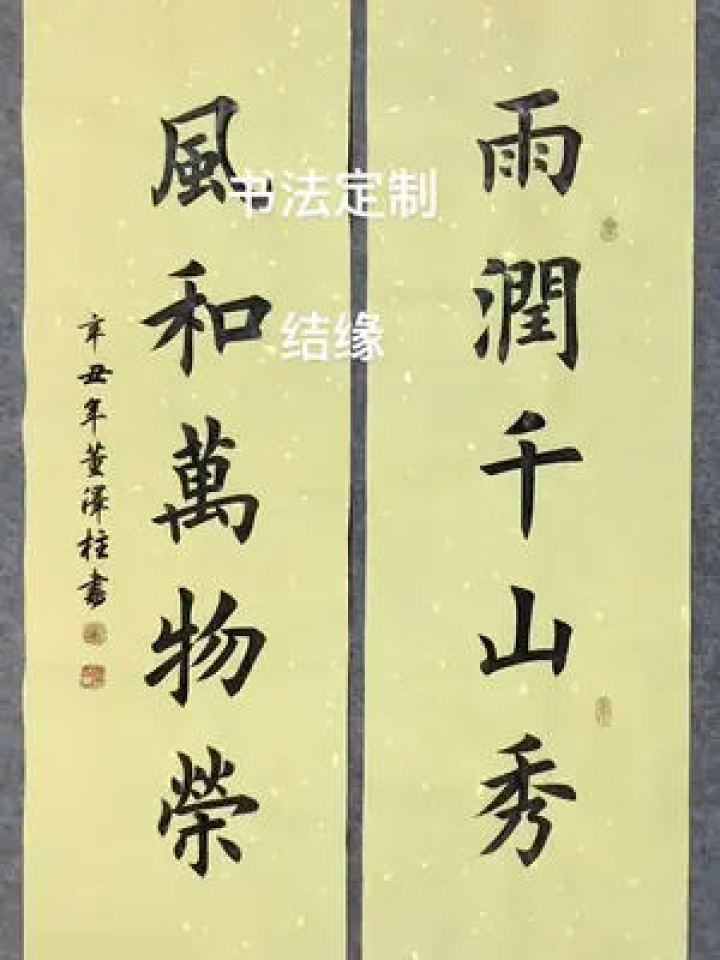 雨潤千山秀
風和萬物榮
辛丑年董澤柱書
书法定制
结缘